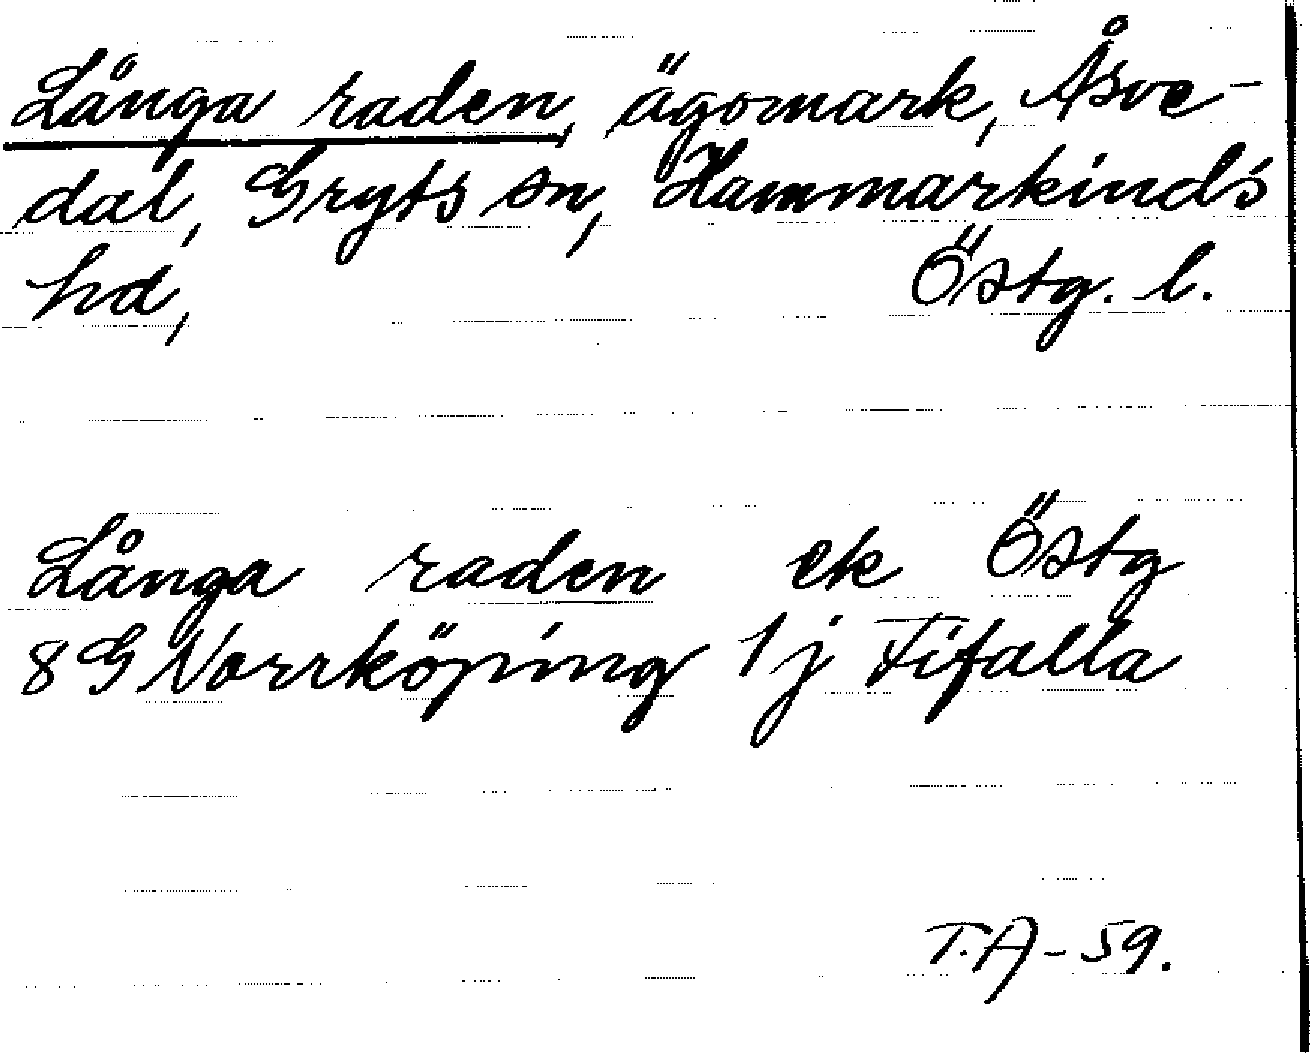 Långa raden, ägomark, Åsve-
dal, Gryts sn, Hammarkinds
hd, Östg. l.
Långa raden ek Östg
8G Norrköping 1j Fifalla
T.A-59.